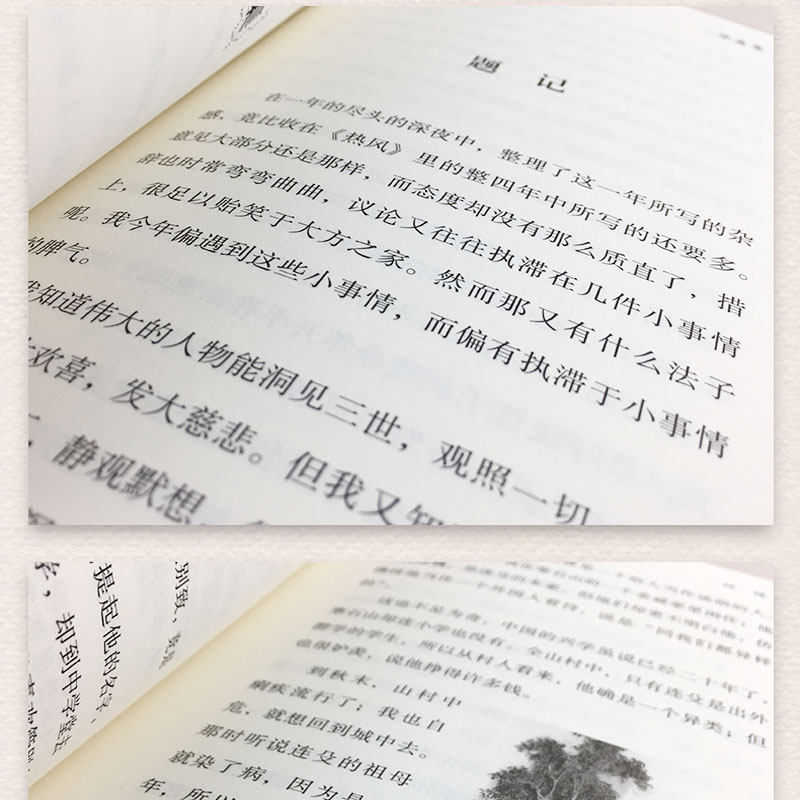 题 记
在一年的尽头的深夜中，整理了这一年所写的杂
感，竟比收在《热风》里的整四年中所写的还要多。
意见大部分还是那样，而态度却没有那么质直了，措
辞也时常弯弯曲曲，议论又往往执滞在几件小事情
上，很足以贻笑于大方之家。然而那又有什么法子
呢。我今年偏遇到这些小事情，而偏有执滞于小事情
的脾气。
我知道伟大的人物能洞见三世，观照一切
大欢喜，发大慈悲。但我又知
，静观默想，
提起他的名字，
，却到中学堂去
别致，竟是
这也不足为奇，中国的兴学虽说已经二十年了，
寒石山却连小学也没有。全山村中，只有连殳是出外
游学的学生，所以从村人看来，他确是一个异类；但
也很妒羡，说他挣得许多钱。
到秋末，山村中
痢疾流行了；我也自
危，就想回到城中去。
那时听说连殳的祖母
就染了病，因为是
年，所以